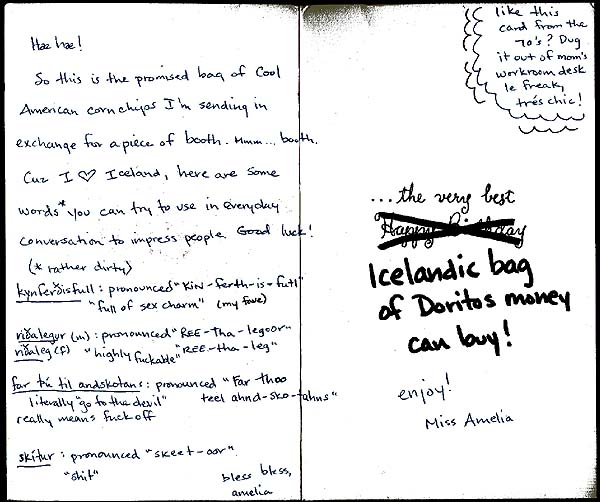 Hae hae!
So this is the promised bag of Cool
American corn chips I'm sending in
exchange for a piece of booth. Mmm... booth.
Cuz I ♡ Iceland, here are some
words* you can try to use in everyday
conversation to impress people. Good luck!
(* rather dirty)
kynferðisfull: pronounced "KiN-ferth-is-futl"
"full of sex charm" (my fave)
riðalegur (m): pronounced "REE-tha-legoor"
riðaleg (f) "highly fuckable" "REE-tha-leg"
far þú til andskotans: pronounced "Far thoo
literally "go to the devil" teel ahnd-sko-tahns"
really means fuck off
skítur: pronounced "skeet-oor"
"shit"
bless bless,
amelia
like this
card from the
70's? Dug
it out of mom's
workroom desk
le freaky
très chic!
...the very best
Happy Birthday
Icelandic bag
of Doritos money
can buy!
enjoy!
Miss Amelia